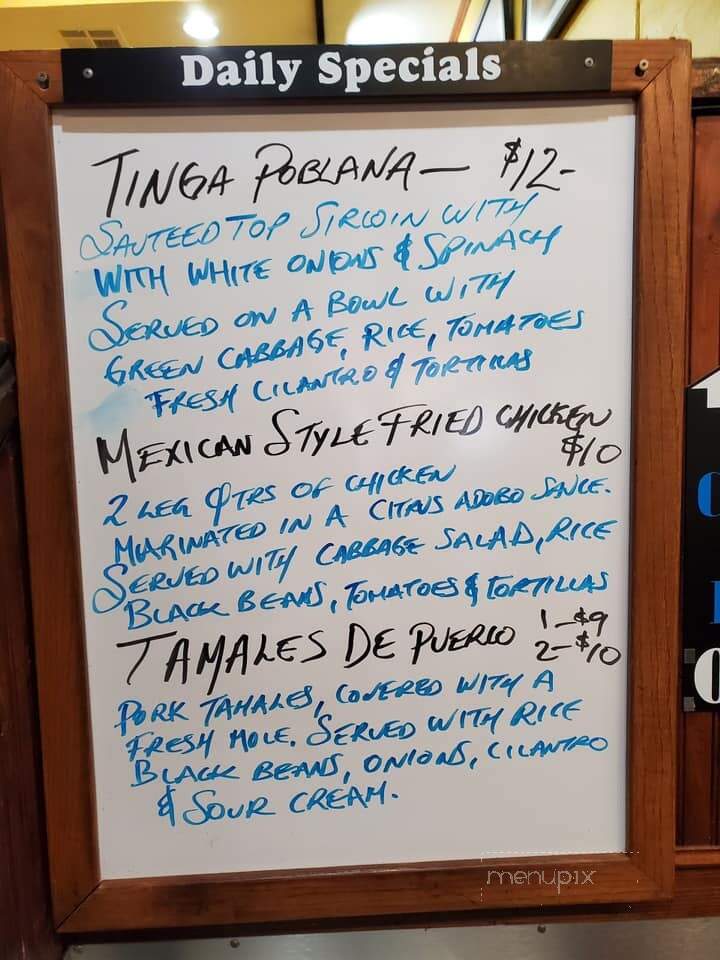 Daily Specials
TINGA POBLANA — $12-
SAUTEED TOP SIRLOIN WITH
WITH WHITE ONIONS & SPINACH
SERVED ON A BOWL WITH
GREEN CABBAGE, RICE, TOMATOES
FRESH CILANTRO & TORTILLAS
MEXICAN STYLE FRIED CHICKEN
$10
2 LEG QTRS OF CHICKEN
MARINATED IN A CITRUS ADOBO SAUCE.
SERVED WITH CABBAGE SALAD, RICE
BLACK BEANS, TOMATOES & TORTILLAS
TAMALES DE PUERCO 1-$9
2-$10
PORK TAMALES, COVERED WITH A
FRESH MOLE. SERVED WITH RICE
BLACK BEANS, ONIONS, CILANTRO
& SOUR CREAM.
menupix